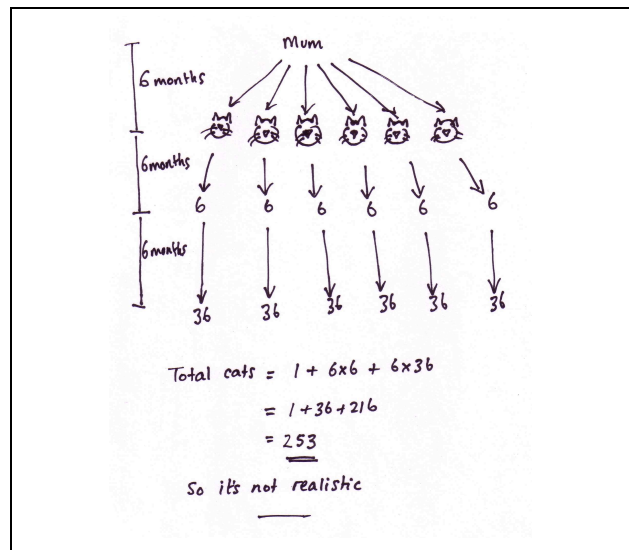 Mum
6 months
6months
6 6 6 6 6 6
6months
36 36 36 36 36 36
Total cats = 1 + 6x6 + 6x36
= 1+36+216
= 253
So it's not realistic